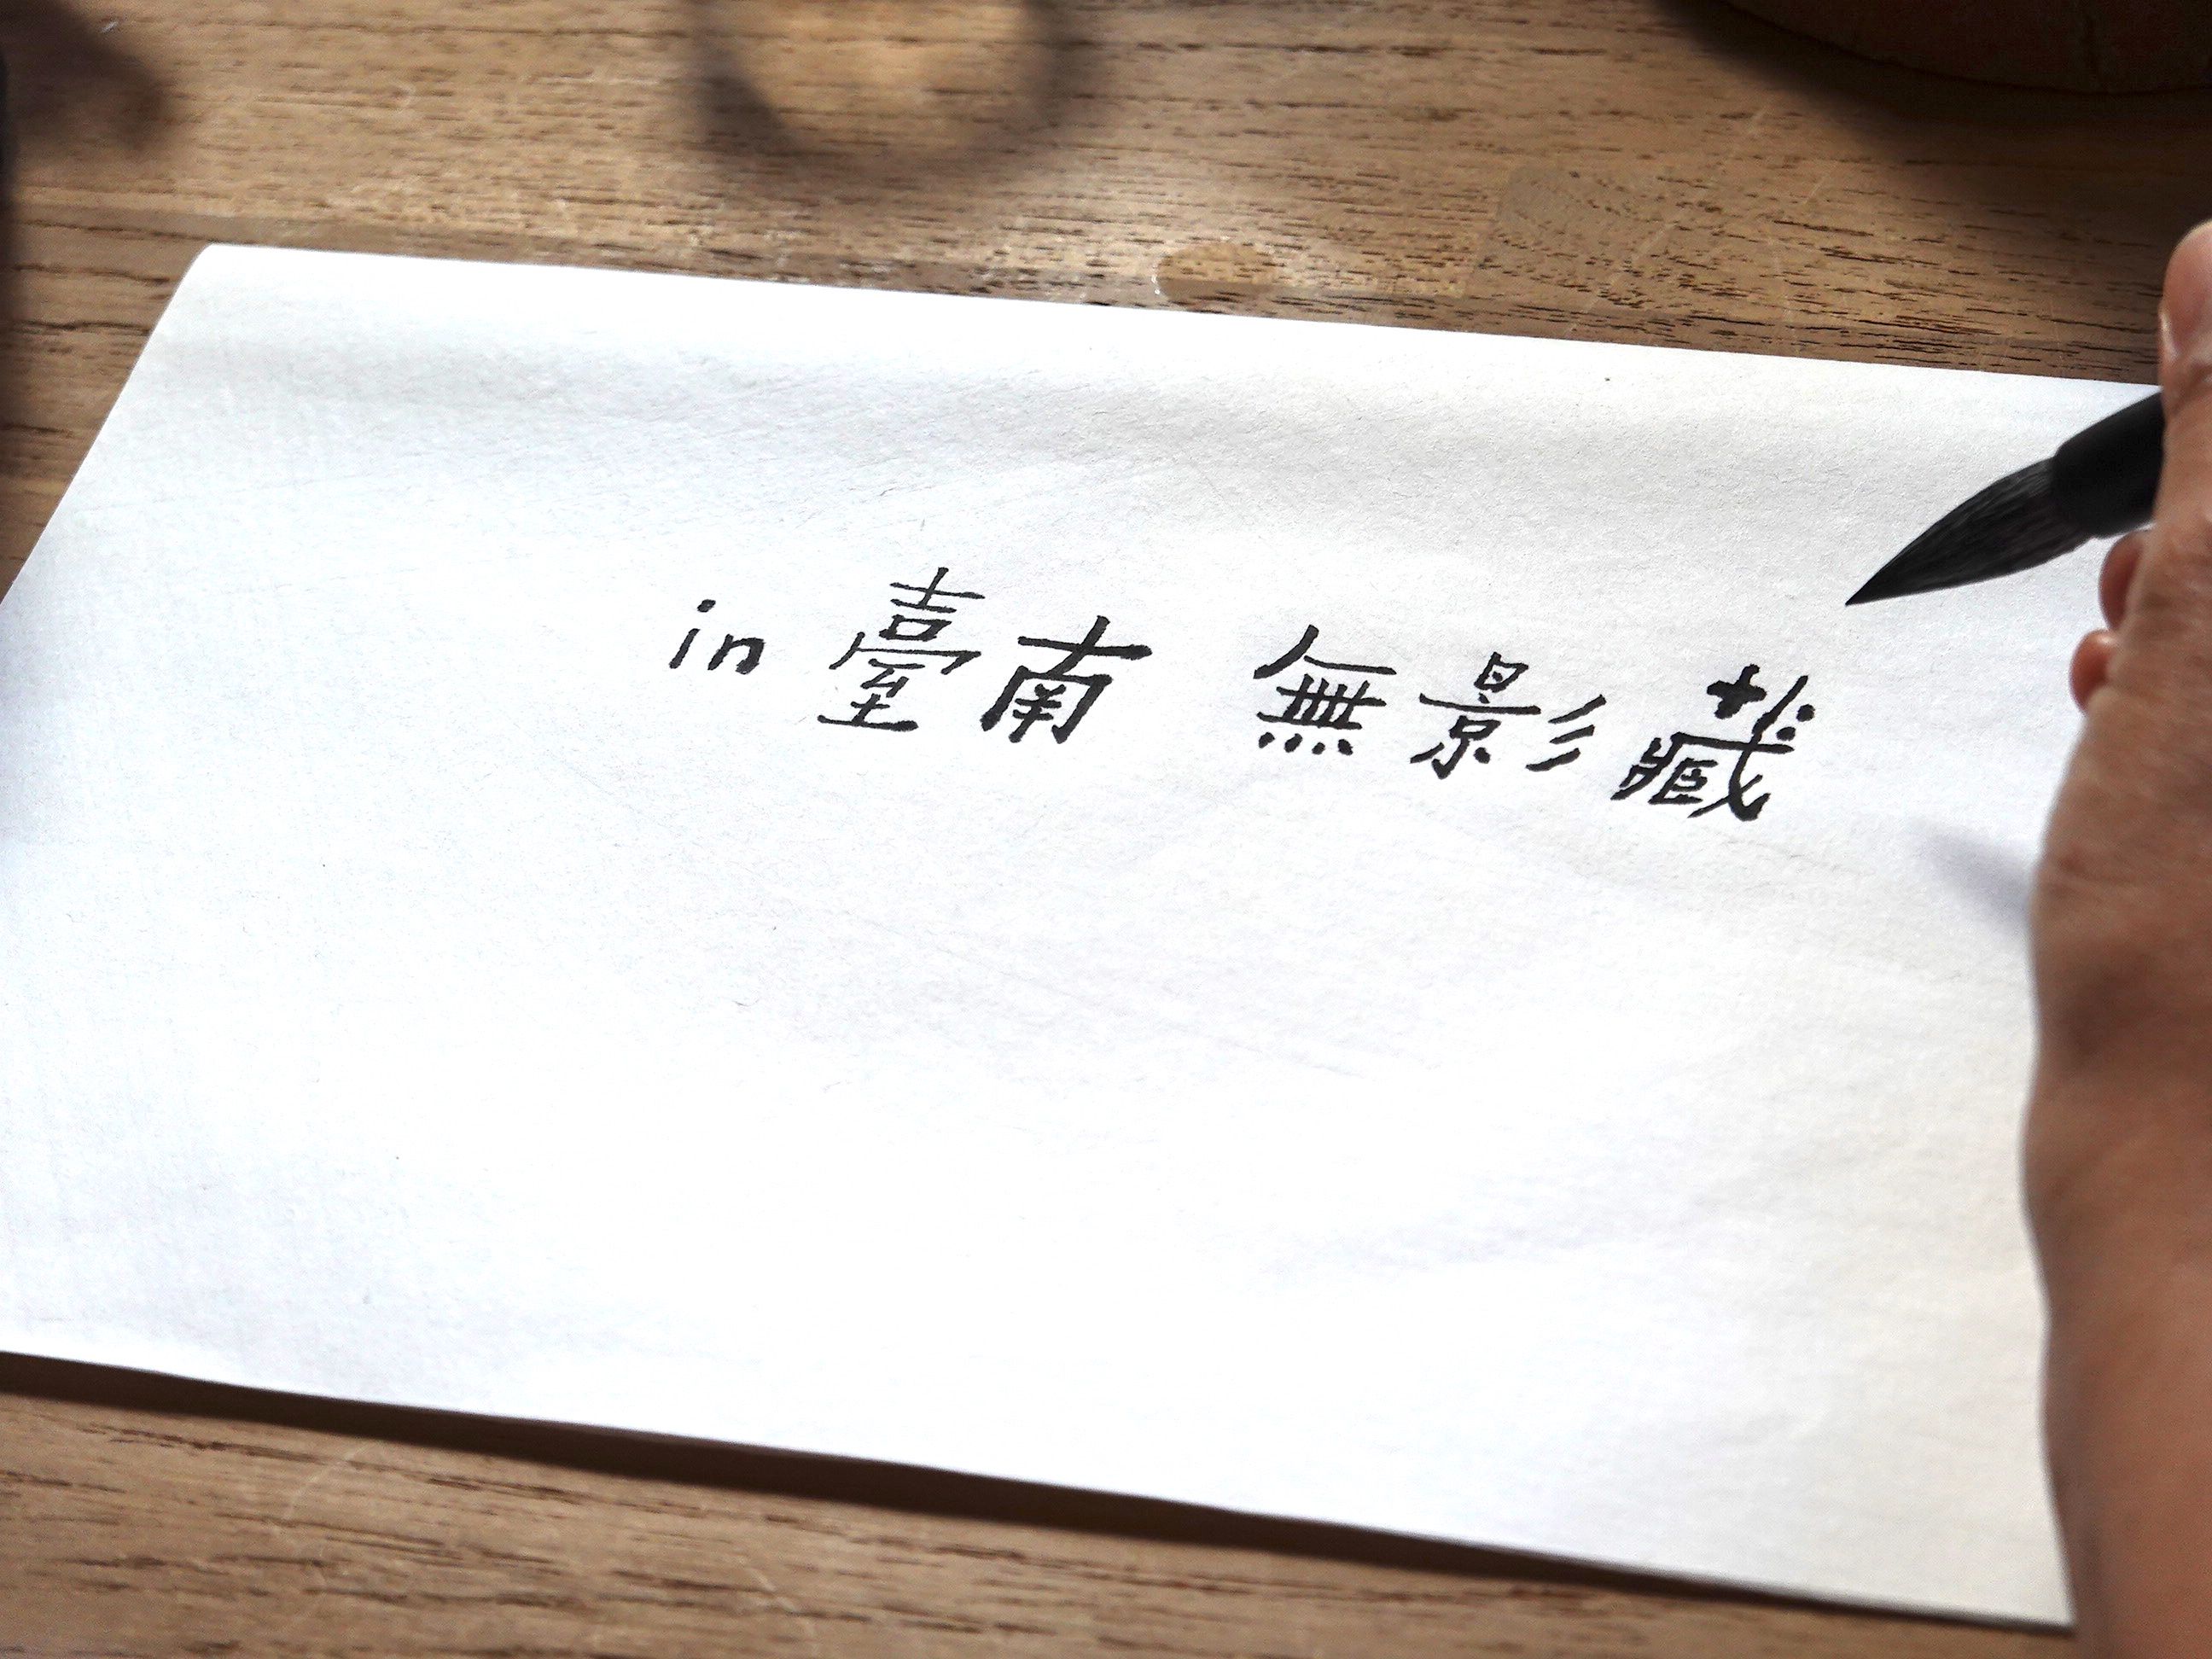 in 臺南 無影藏